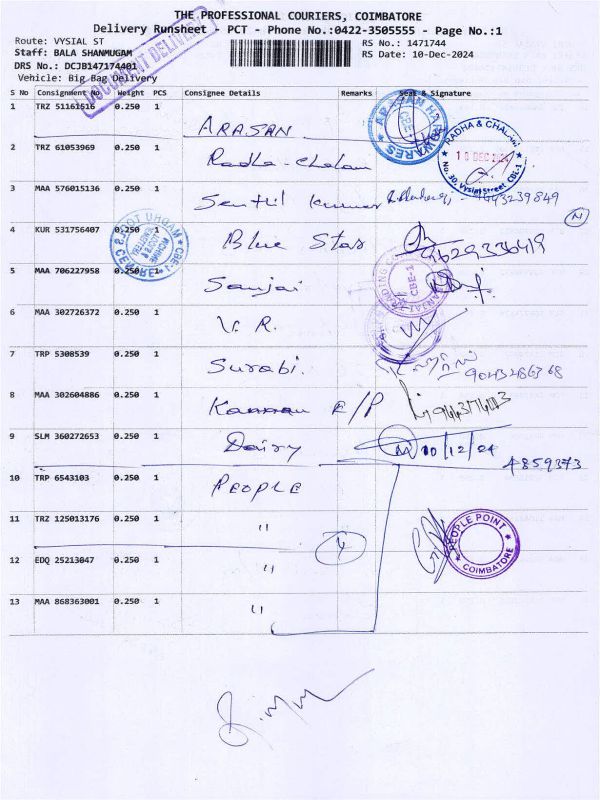 THE PROFESSIONAL COURIERS, COIMBATORE
Delivery Runsheet - PCT - Phone No.:0422-3505555 - Page No.:1
Route: VYSIAL ST
RS No.: 1471744
Staff: BALA SHANMUGAM
RS Date: 10-Dec-2024
DRS No.: DCJB147174401
Vehicle: Big Bag Delivery
DOCUMENT DELIVERY
S No Consignment No Weight PCS Consignee Details Remarks Seal & Signature
1 TRZ 51161616 0.250 1 ARASAN
2 TRZ 61053969 0.250 1 Radha-Chalam
RADHA & CHALAM
10 DEC 2024
No. 30, Vysial Street CBE-1
3 MAA 576015136 0.250 1 Senthil Kumar 9443239849
N
4 KUR 531756407 0.250 1 Blue Star 9629330419
MADHU TOOLS
CENTRE
CBE-1
5 MAA 706227958 0.250 1 Sanjai
CBE-1
6 MAA 302726372 0.250 1 V.R.
7 TRP 5308539 0.250 1 Surabi.
8 MAA 302604886 0.250 1 Kannan E/P
9 SLM 360272653 0.250 1 Dairy 10/12/24
4859373
10 TRP 6543103 0.250 1 PEOPLE
11 TRZ 125013176 0.250 1 "
4
PEOPLE POINT
COIMBATORE
12 EDQ 25213047 0.250 1 "
13 MAA 868363001 0.250 1 "